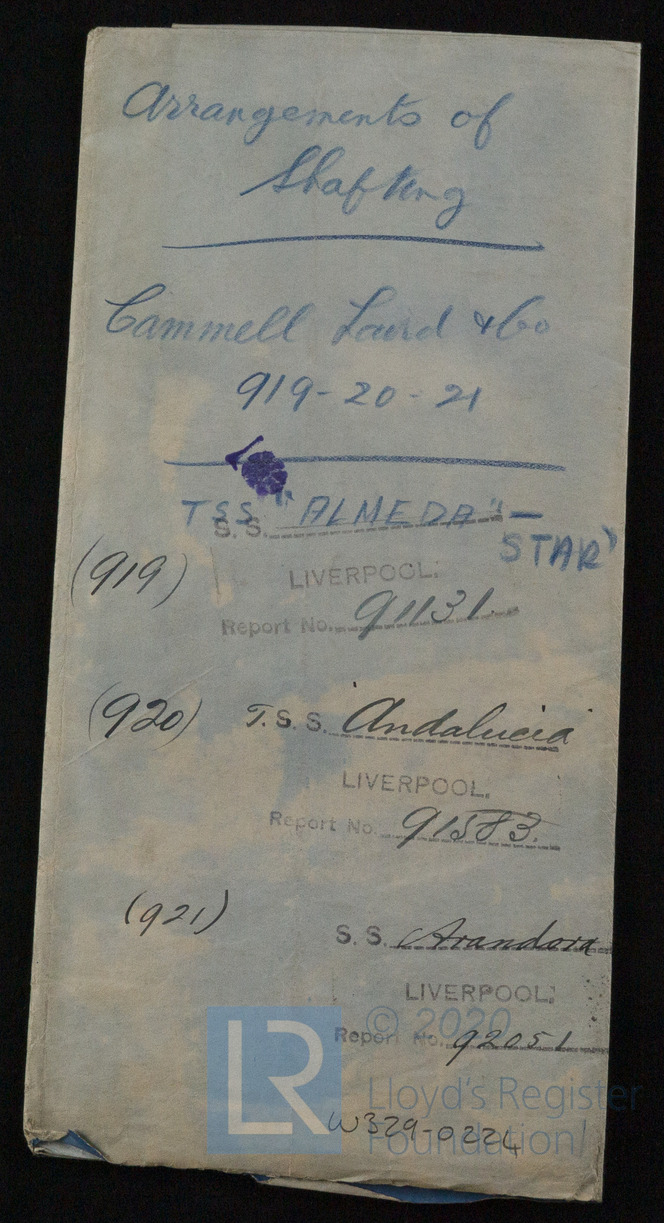 Arrangements of
Shafting
Cammell Laird & Co
919-20-21
TSS "ALMEDA" -
S. S.
STAR"
(919)
LIVERPOOL.
Report No. 91131.
(920) T.S.S. 'Andalucia'
LIVERPOOL.
Report No. 91583.
(921)
S. S. Arandora
LIVERPOOL.
© 2020
Report No. 92051
LR
Lloyd's Register
W329-0224
Foundation